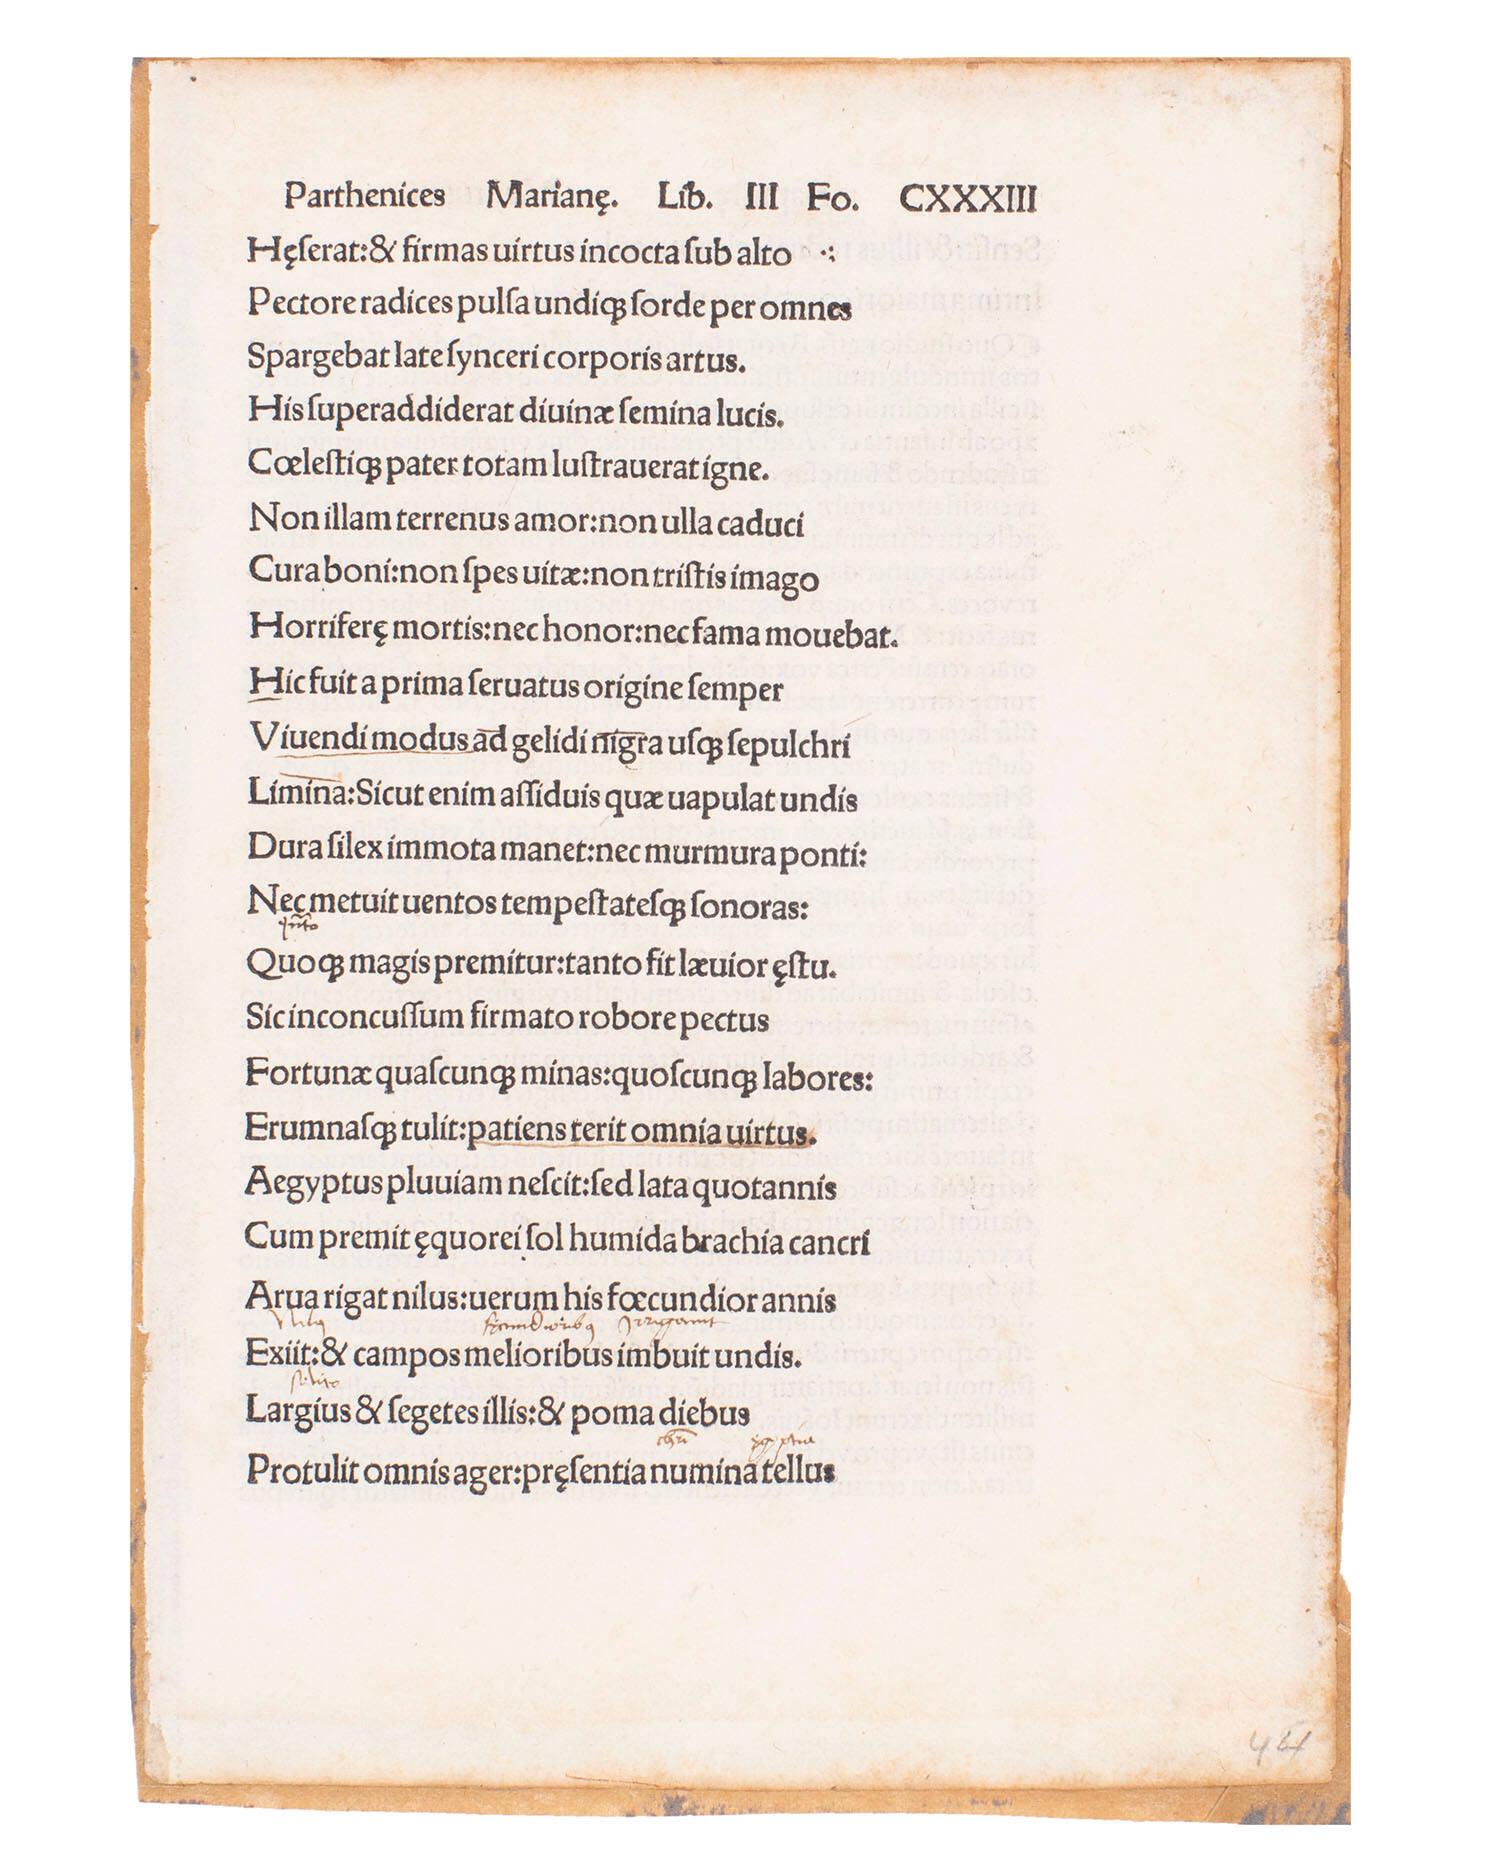 Parthenices Marianę. Lib. III Fo. CXXXIII
Hęſerat:& firmas uirtus incocta ſub alto
Pectore radices pulſa undiqꝫ ſorde per omnes
Spargebat late ſynceri corporis artus.
His ſuperaddiderat diuinæ ſemina lucis.
Cœleſtiqꝫ pater totam luſtrauerat igne.
Non illam terrenus amor:non ulla caduci
Cura boni:non ſpes uitæ:non triſtis imago
Horriferę mortis:nec honor:nec fama mouebat.
Hic fuit a prima ſeruatus origine ſemper
Viuendi modus ad gelidi nigra uſqꝫ ſepulchri
Limina:Sicut enim aſſiduis quæ uapulat undis
Dura ſilex immota manet:nec murmura ponti:
Nec metuit uentos tempeſtateſqꝫ ſonoras:
Quoqꝫ magis premitur:tanto fit læuior ęſtu.
Sic inconcuſſum firmato robore pectus
Fortunæ quaſcunqꝫ minas:quoſcunqꝫ labores:
Erumnaſqꝫ tulit:patiens terit omnia uirtus.
Aegyptus pluuiam neſcit:ſed lata quotannis
Cum premit ęquorei ſol humida brachia cancri
Arua rigat nilus:uerum his fœcundior annis
Exiit:& campos melioribus imbuit undis.
solito
Largius & ſegetes illis:& poma diebus
Protulit omnis ager:pręſentia numina tellus